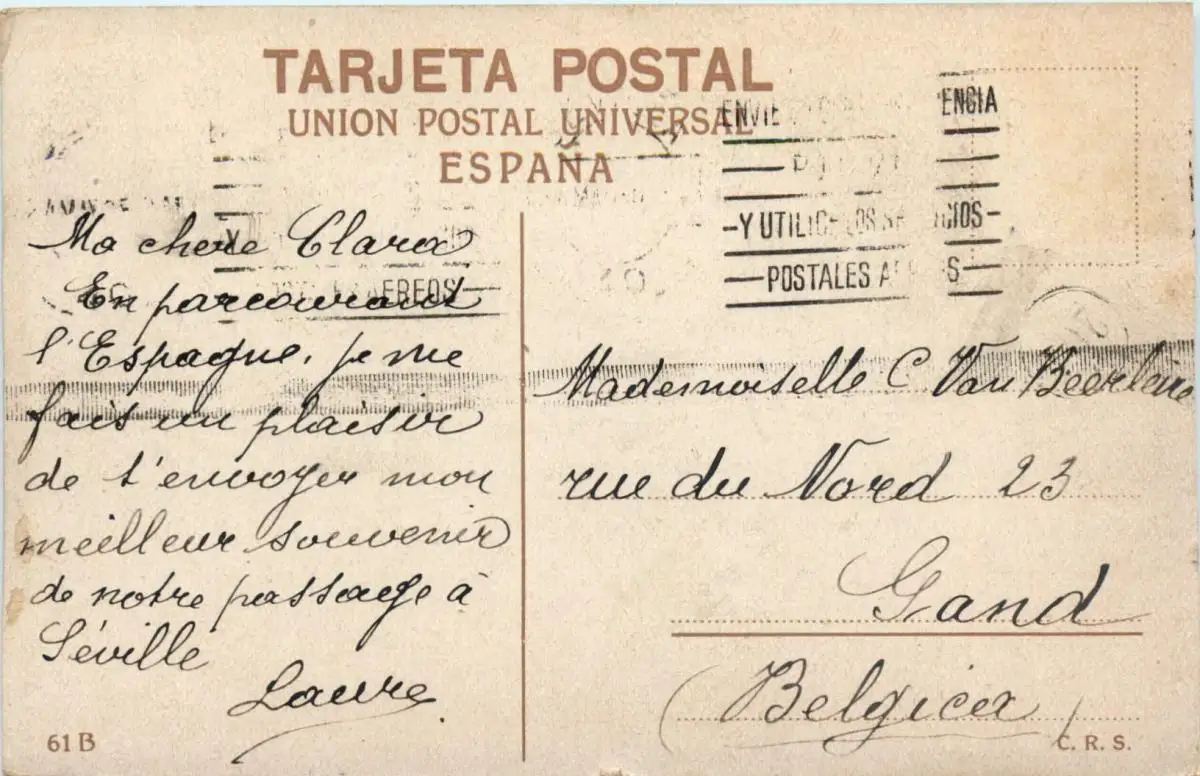 TARJETA POSTAL
UNION POSTAL UNIVERSAL
ESPAÑA
ENVIE
ENCIA
-Y UTILICE LOS SERVICIOS-
POSTALES AEREOS
AEREOS
Ma chere Clara
En parcourant
l'Espagne, je me
fais un plaisir
de t'envoyer mon
meilleur souvenir
de notre passage à
Séville
Laure
Mademoiselle C Van
rue du Nord 23
Gand
(Belgica)
61 B
C. R. S.